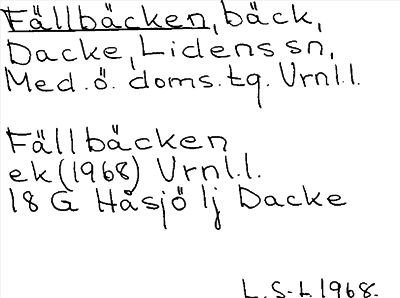 Fällbäcken, bäck,
Dacke, Lidens sn,
Med. ö. doms. tg. Vrnl.l.
Fällbäcken
ek (1968) Vrnl.l.
18 G Håsjö lj Dacke
L. S-t. 1968.